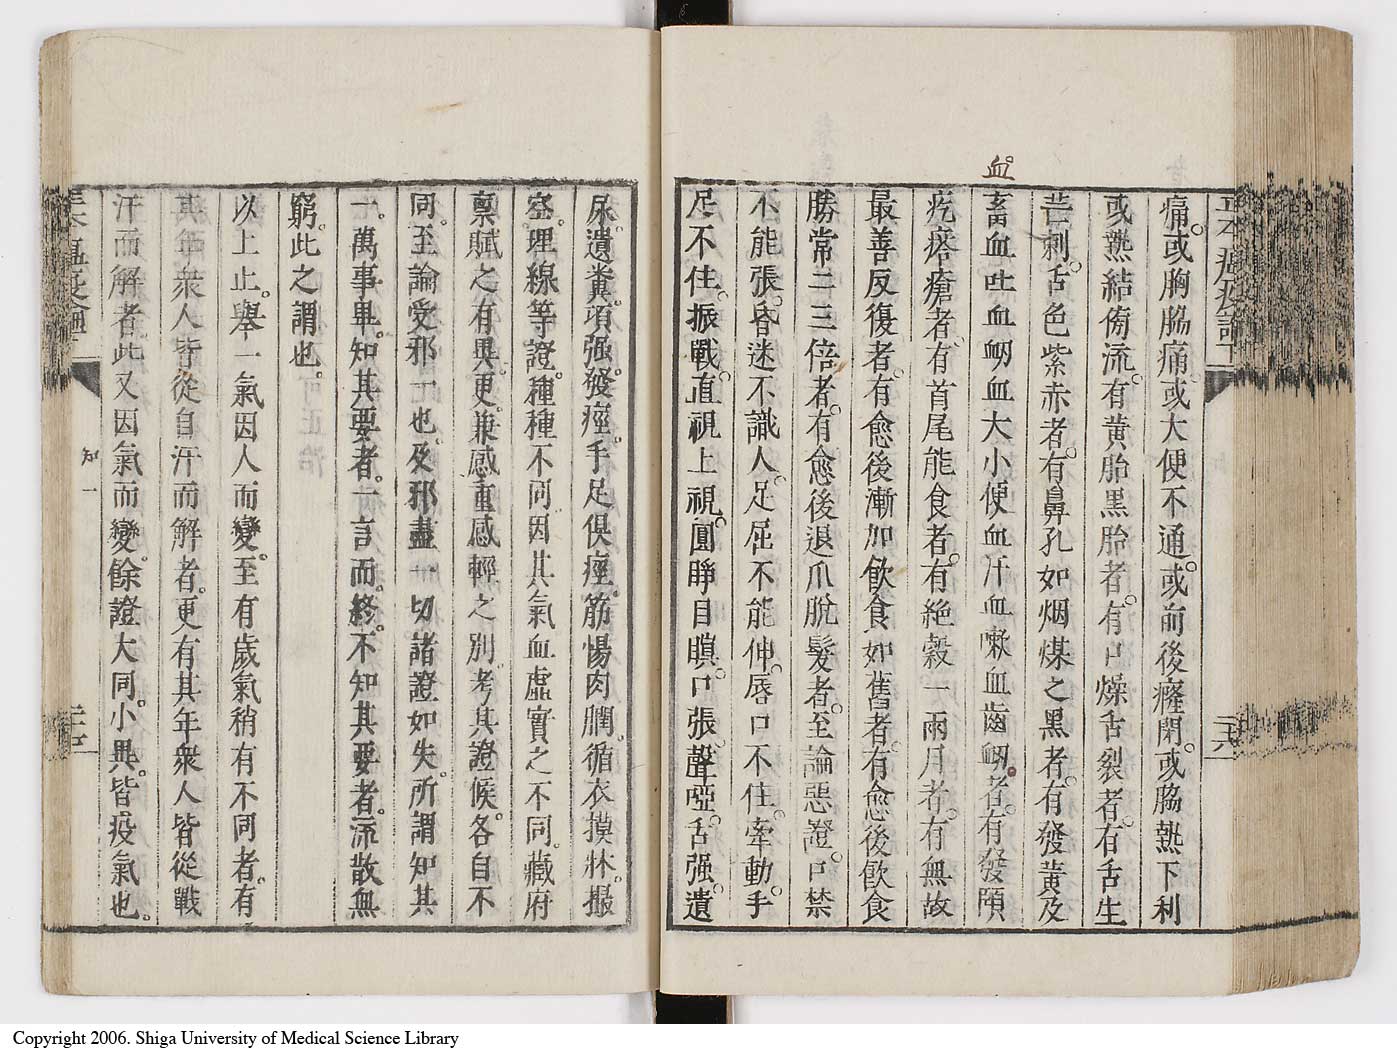 血
痛。或胸脇痛。或大便不通。或前後癃閉。或脇熱下利
或熱結傍流。有黄胎黑胎者。有口燥舌裂者。有舌生
芒刺。舌色紫赤者。有鼻孔如烟煤之黑者。有發黄及
畜血吐血衂血大小便血汗血嗽血齒衂者。有發頤
疙瘩瘡者。有首尾能食者。有絶穀一兩月者。有無故
最善反復者。有愈後漸加飲食如舊者。有愈後飲食
勝常二三倍者。有愈後退爪脫髮者。至論惡證。口禁
不能張。昏迷不識人。足屈不能伸。唇口不住牽動。手
足不住振戰。直視上視。圓睜目瞑。口張聲啞。舌强。遺
尿。遺糞。項强。發痙。手足俱痙。筋惕肉瞤。循衣摸牀。撮
空。理線等證。種種不同。因其氣血虛實之不同。藏府
禀賦之有異。更兼感重感輕之別。考其證候。各自不
同。至論受邪一也。及邪盡一切諸證如失。所謂知其
一。萬事畢。知其要者。一言而。終。不知其要者。流散無
窮。此之謂也。
以上止舉一氣因人而變。至有歲氣稍有不同者。有
其年衆人皆從自汗而解者。更有其年衆人皆從戰
汗而解者。此又因氣而變。餘證大同。小異。皆疫氣也。
知一
Copyright 2006. Shiga University of Medical Science Library